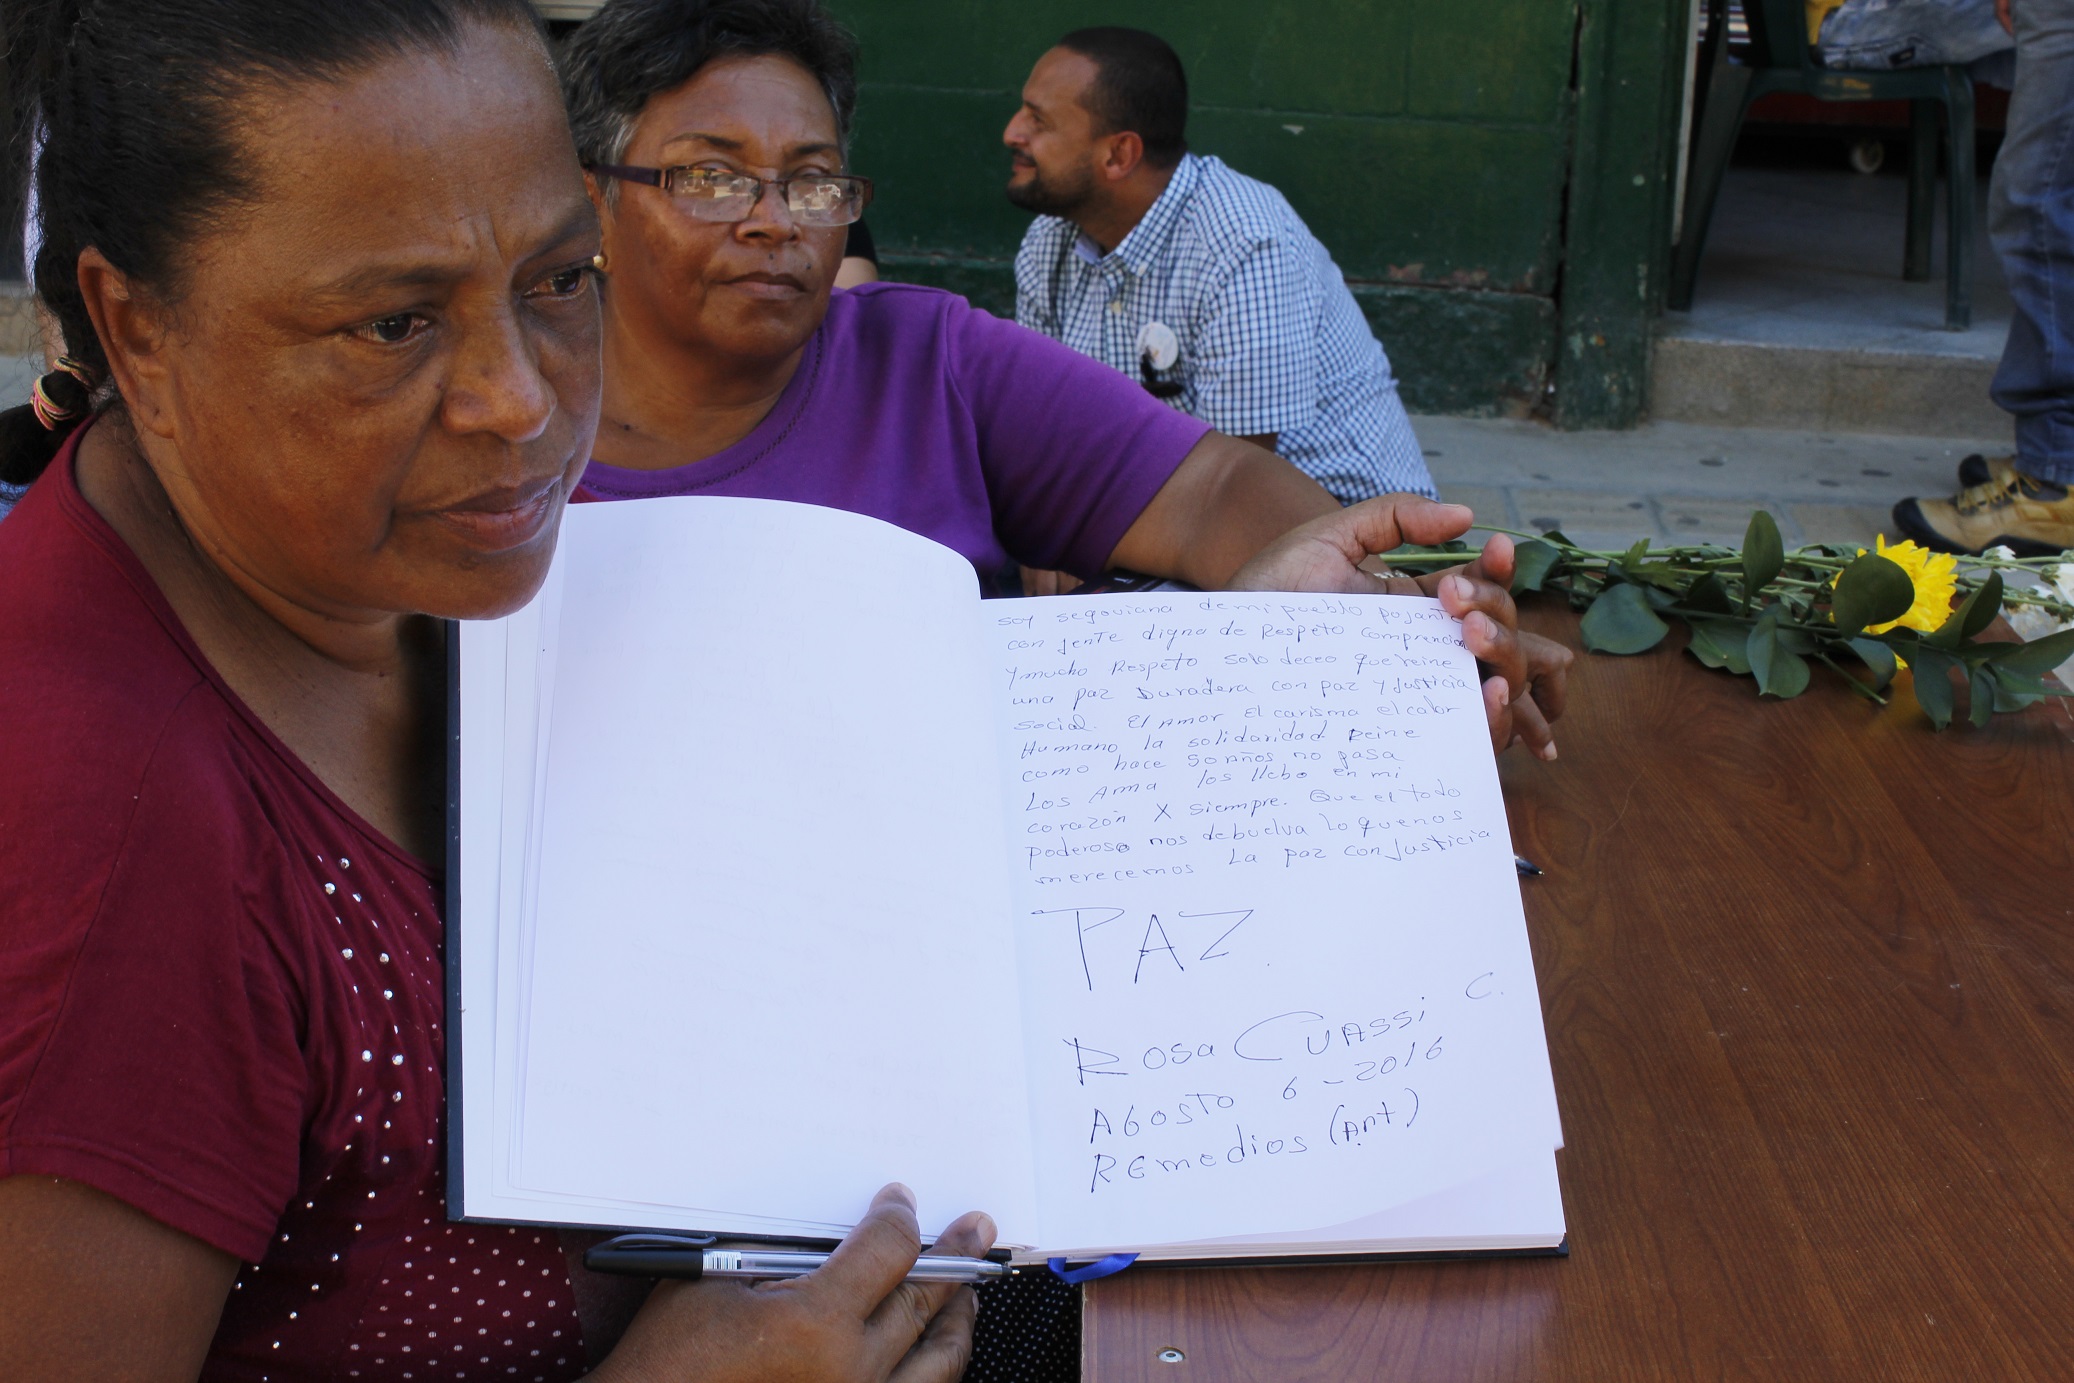 soy segoviana de mi pueblo pojante
con jente digna de Respeto comprencion
y mucho Respeto solo deceo que reine
una paz Duradera con paz y Justicia
social. El Amor El carisma el calor
Humano la solidaridad Reine
como hace 50 años no pasa
Los Ama los llebo en mi
corazón X siempre. Que el todo
Poderoso nos debuelva lo que nos
merecemos La paz con Justicia
PAZ
Rosa Cuassi C.
Agosto 6 - 2016
REmedios (Ant)